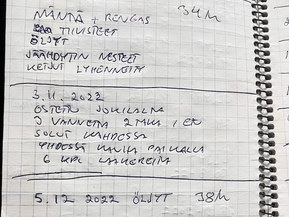 MÄNTÄ + RENGAS 34H
TIIVISTEET
ÖLJYT
JÄÄHDYTIN NESTEET
KETJUT LYHENNETTY
3.11.2022
OSTETTU
3 VANNETTA 2
SOLUT KAHDESSA
YHDESSÄ KAIKKI PAIKALLA
6 KPL LAAKEREITA
5.12 2022 ÖLJYT 38H